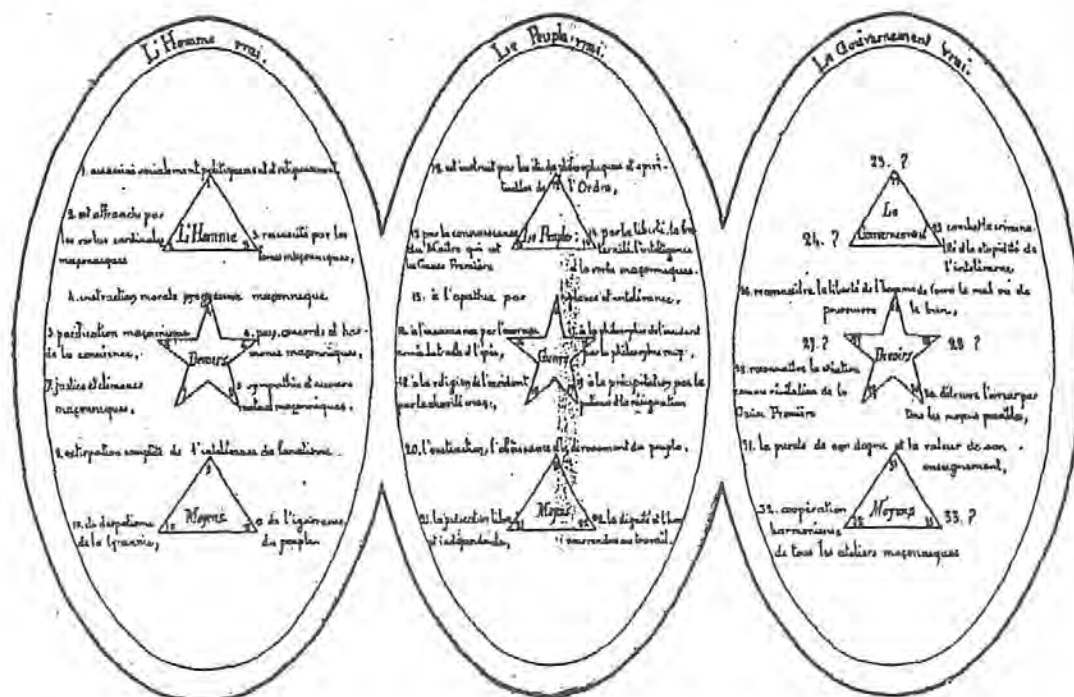 L'Homme vrai.
1. assassiné socialement politiquement et
1
2. est affranchi par
les vertus cardinales
maçonniques
L'Homme
3. ressuscité par les
maçonniques,
4. instruction morale maçonnique
3. pacification maçonnique
de la conscience,
Devoirs
6. paix, concorde et har-
monie maçonniques,
7. justice et clémence
maçonniques,
8. sympathie et secours
mutuels maçonniques.
9. extirpation complète de l'intolérance du fanatisme
9
10. du despotisme
de la tyrannie,
Moyens
de l'ignorance
du peuple
Le Peuple vrai.
12. est instruit par les études philosophiques et spiri-
tuelles de l'Ordre,
13. par la connaissance
du Maître qui est
la Cause Première
Le Peuple
14. par la liberté, la fra-
ternité, l'intelligence
à la vertu maçonniques.
15. à l'apathie par et intolérance,
16. à l'ignorance par
Guerre
à la philosophie de l'incident
par la philosophie maç.
18. à la religion de l'incident
par la
19. à la précipitation par la
patience et la résignation
20. l'instruction, l'obéissance et le dévouement du peuple,
21. la juridiction libre
et indépendante,
Moyens
22. la dignité et l'hon
au travail.
Le Gouvernement vrai.
23. ?
24. ?
Le
Gouvernement
25 combat la crimina-
lité et la stupidité de
l'intolérance
26. reconnaître la liberté de l'homme de faire le mal ou de
poursuivre le bien,
27. ?
Devoirs
28 ?
29. reconnaître la création
comme révélation de la
Cause Première
30. détruire l'erreur par
tous les moyens possibles,
31. la pureté de son dogme et la valeur de son
enseignement,
31
32. coopération
harmonieuse,
de tous les ateliers maçonniques
Moyens
33. ?